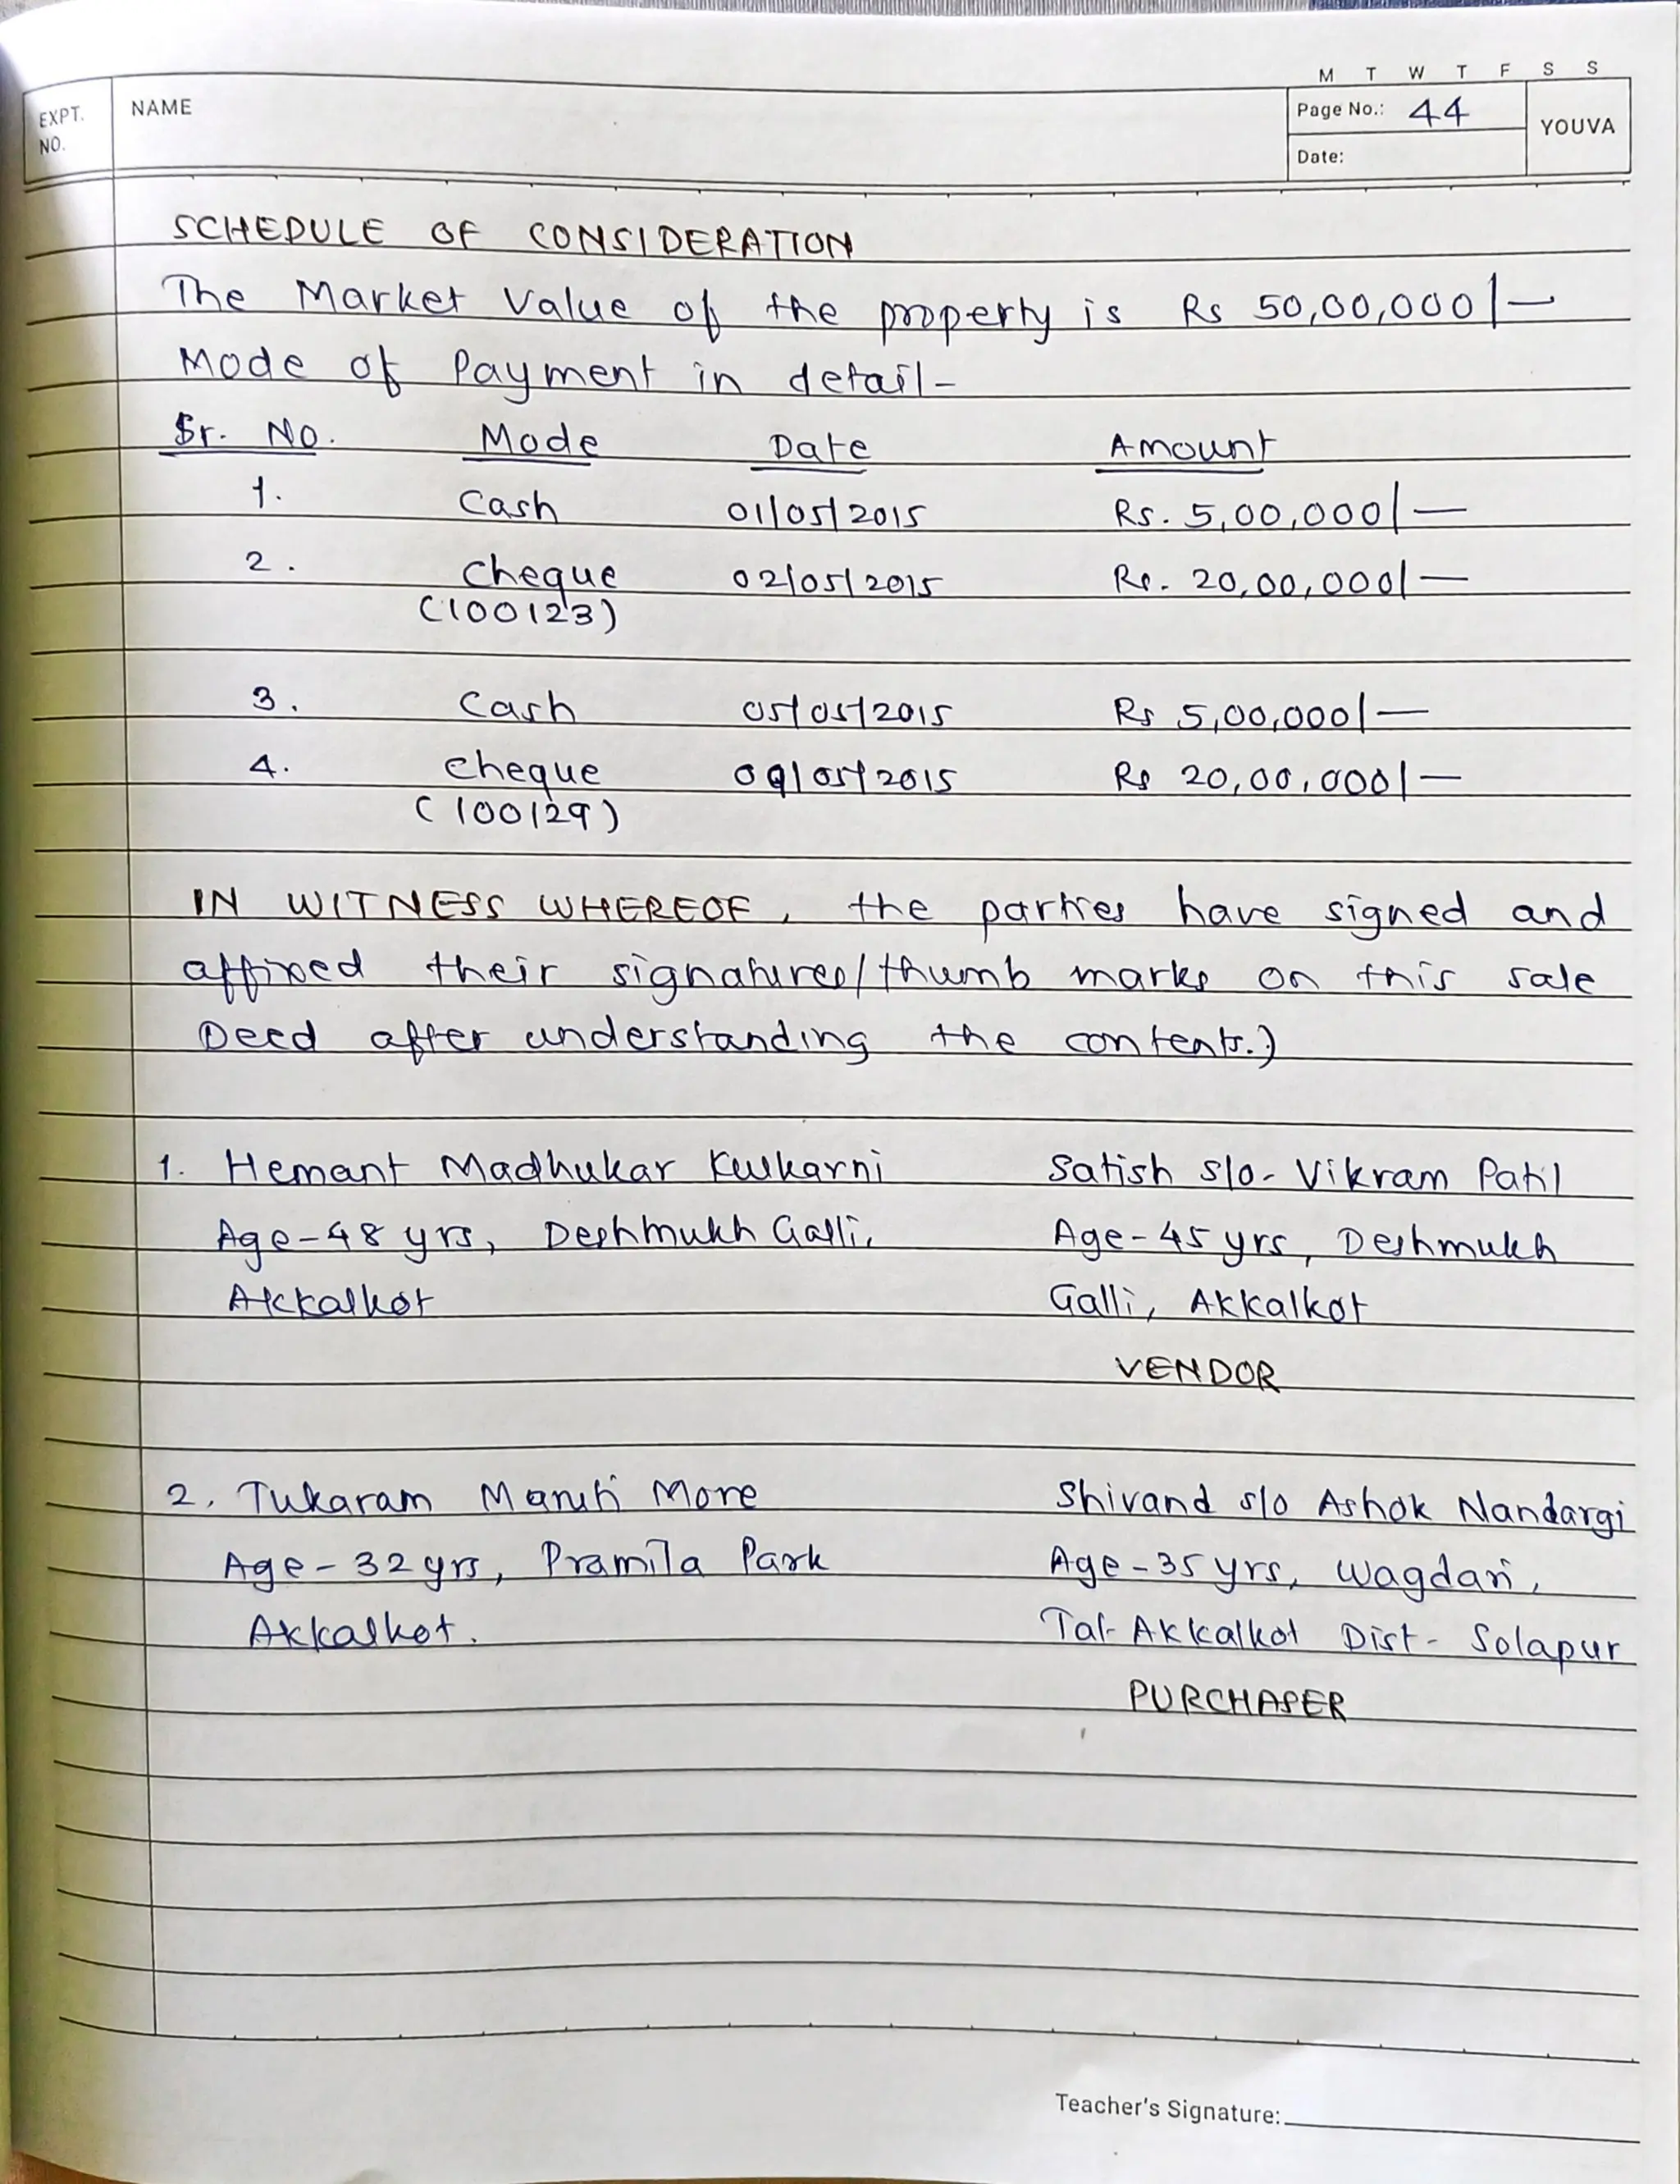 M T W T F S S
EXPT. NO.
NAME
Page No.: 44
YOUVA
Date:
SCHEDULE OF CONSIDERATION
The Market Value of the property is Rs 50,00,000/-
Mode of Payment in detail-
Sr. No. Mode Date Amount
1. Cash 01/05/2015 Rs. 5,00,000/-
2. Cheque 02/05/2015 Rs. 20,00,000/-
(100123)
3. Cash 05/05/2015 Rs 5,00,000/-
4. Cheque 09/05/2015 Rs 20,00,000/-
(100129)
IN WITNESS WHEREOF, the parties have signed and
affixed their signatures/thumb marks on this sale
Deed after understanding the contents.)
1. Hemant Madhukar Kulkarni Satish s/o- Vikram Patil
Age-48 yrs, Deshmukh Galli, Age-45 yrs, Deshmukh
Akkalkot Galli, Akkalkot
VENDOR
2. Tukaram Maruti More Shivand s/o Ashok Nandargi
Age-32 yrs, Pramila Park Age-35 yrs, Wagdari,
Akkalkot. Tal- Akkalkot Dist- Solapur
PURCHASER
Teacher's Signature: